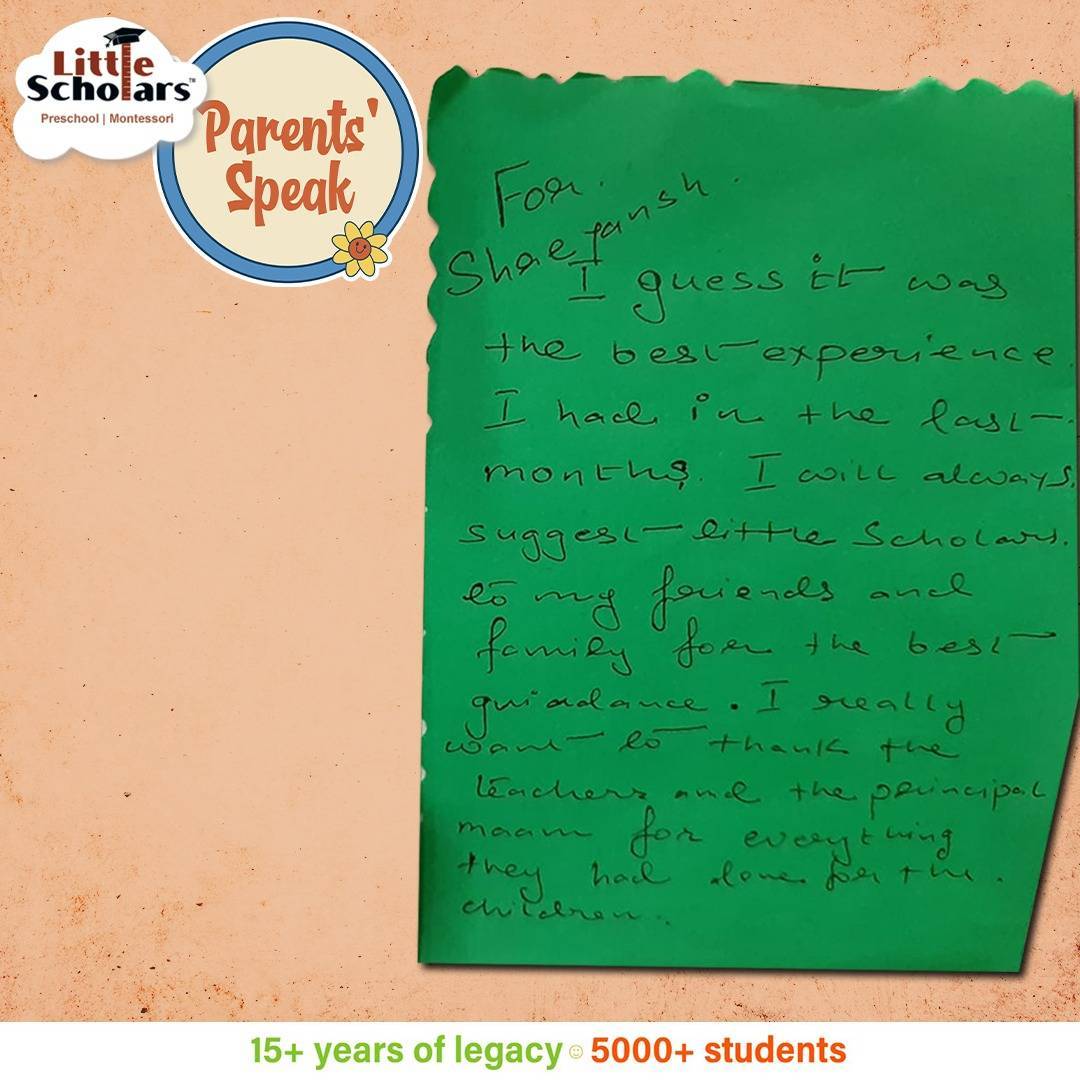 Little
Scholars™
Preschool | Montessori
Parents'
Speak
For
I guess it was
the best experience
I had in the last
months. I will always
suggest little Scholars.
to my friends and
family for the best
guiadance. I really
want to thank the
teachers and the principal
maam for everything
they had done for the.
children..
15+ years of legacy 5000+ students